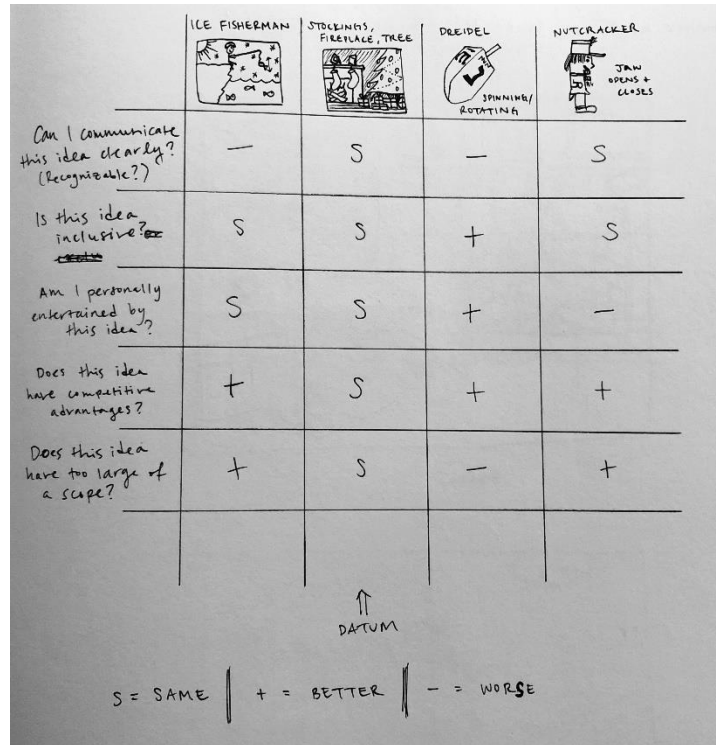 ICE FISHERMAN
STOCKINGS,
FIREPLACE, TREE
DREIDEL
SPINNING/
ROTATING
NUTCRACKER
JAW
OPENS +
CLOSES
Can I communicate
this idea clearly?
(Recognizable?)
— S — S
Is this idea
inclusive?
S S + S
Am I personally
entertained by
this idea?
S S + —
Does this idea
have competitive
advantages?
+ S + +
Does this idea
have too large of
a scope?
+ S — +
DATUM
S = SAME || + = BETTER || - = WORSE